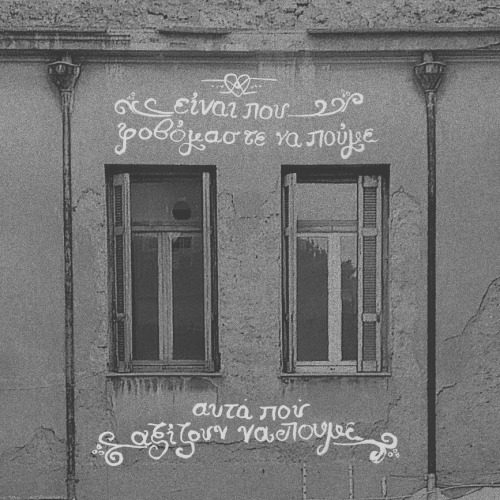 είναι που
φοβόμαστε να πούμε
αυτά που
αξίζουν να πουμε